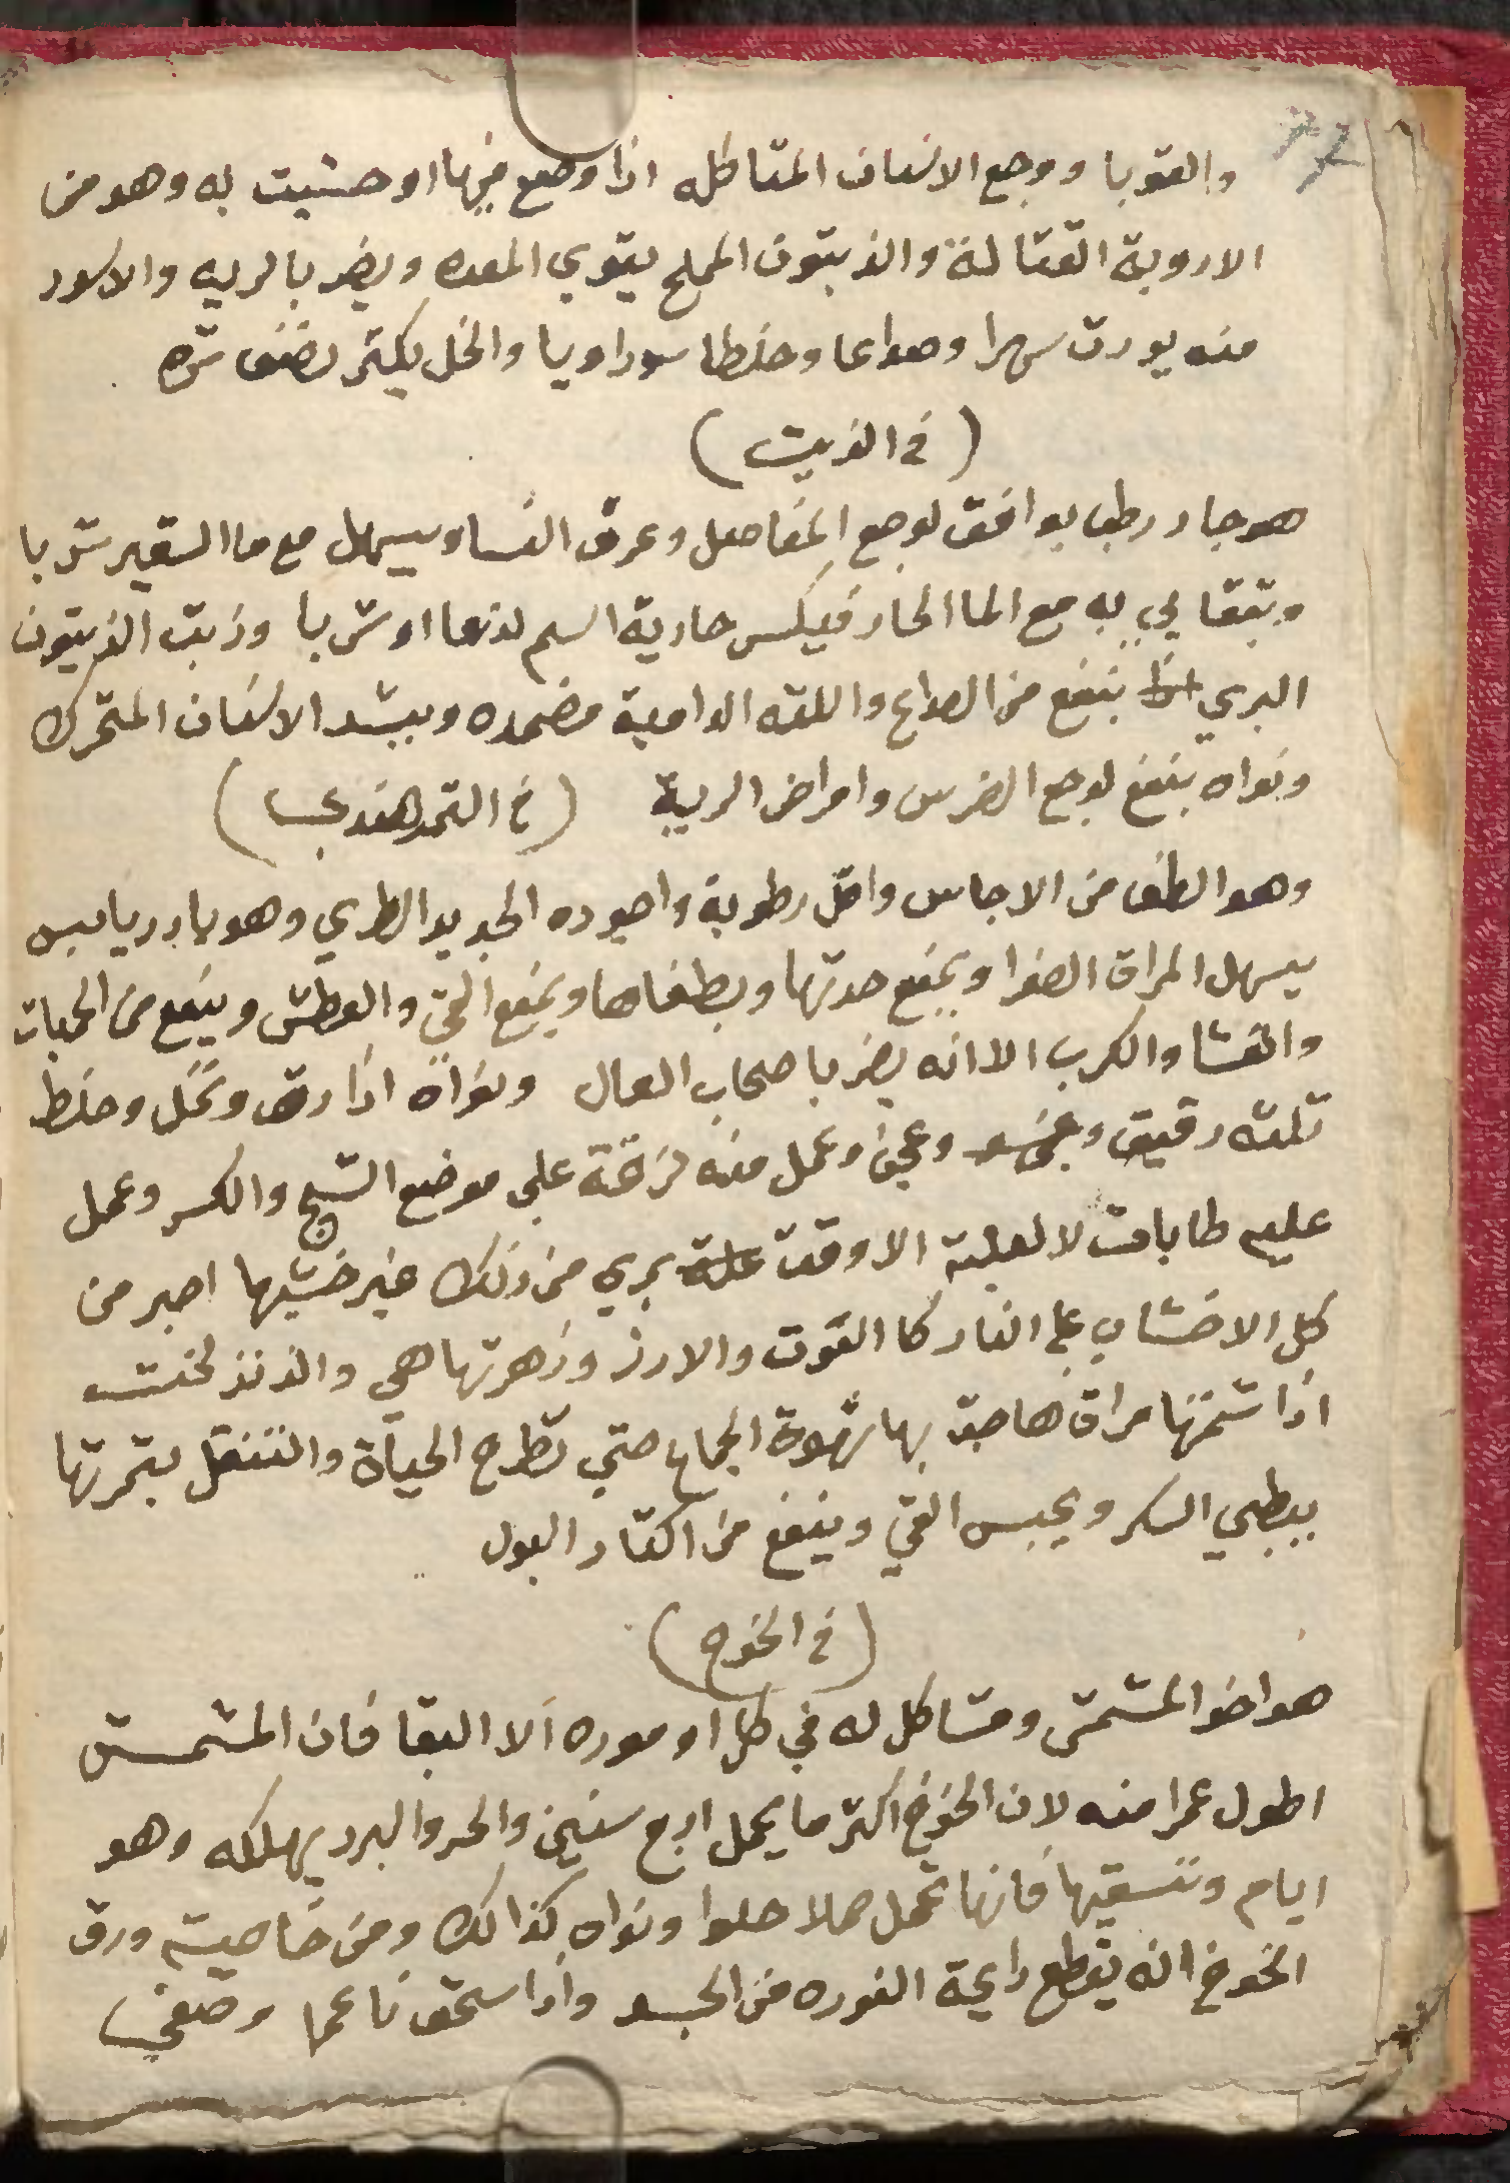 والقوبا ووجع الاسنان المتاكله اذا وضع فيها او حشيت به وهو من
الادوية القتالة والزيتون المملح يقوي المعده ويضر بالريه والاسود
منه يورت سهرا وصداعا وخلطا سوداويا والخل يكثر
(في الزيت)
هو حار رطب يوافق لوجع المفاصل وعرق النسا ويسهل مع ما الشعير شربا
ويتقايي به مع الما الحار فيكسر عادية السم لذعا او شربا وزيت الزيتون
البري ينفع من الصداع واللثه الدامية مضمده ويشد الاسنان المتحرك
ونواه ينفع لوجع الضرس وامراض الرية (في التمر هندي)
وهو الطف من الاجاس واقل رطوبة واجوده الجديد الطري وهو بارد يابس
يسهل المراق الصفرا ويمنع حدتها ويطفاها ويمنع القي والعطش وينفع من الحميات
والغشا والكرب الا انه يضر باصحاب السعال ونواه اذا دق ونخل وخلط
تلته دقيق وعجن وعمل منه لزقة علي موضع الشج والكسر وعمل
عليه طابات لا لعلية الا وقت بري من ذلك غير خشبها اصبر من
كل الاخشاب علي النار كا التوت والارز وزهرتها هي والزنزلخت
اذا شمتها مراة هاجت بها شهوة الجماع حتي تطرح الحياة والتنقل بثمرتها
يبطي السكر ويحبس القي وينفع من اكتار البول
(في الخوخ)
هو اخو المشمش ومشاكل له في كل اوموره الا البقا فان المشمش
اطول عمرا منه لان الخوخ اكثر ما يحمل اربع سنين والحر والبرد يهلكه وهو
ايام وتسقيها فانها تحمل حملا حلوا ونواه كذالك ومن خاصيته ورق
الخوخ انه يقطع رايحة النوره من الجسد واذا سحق ناعما وصفي